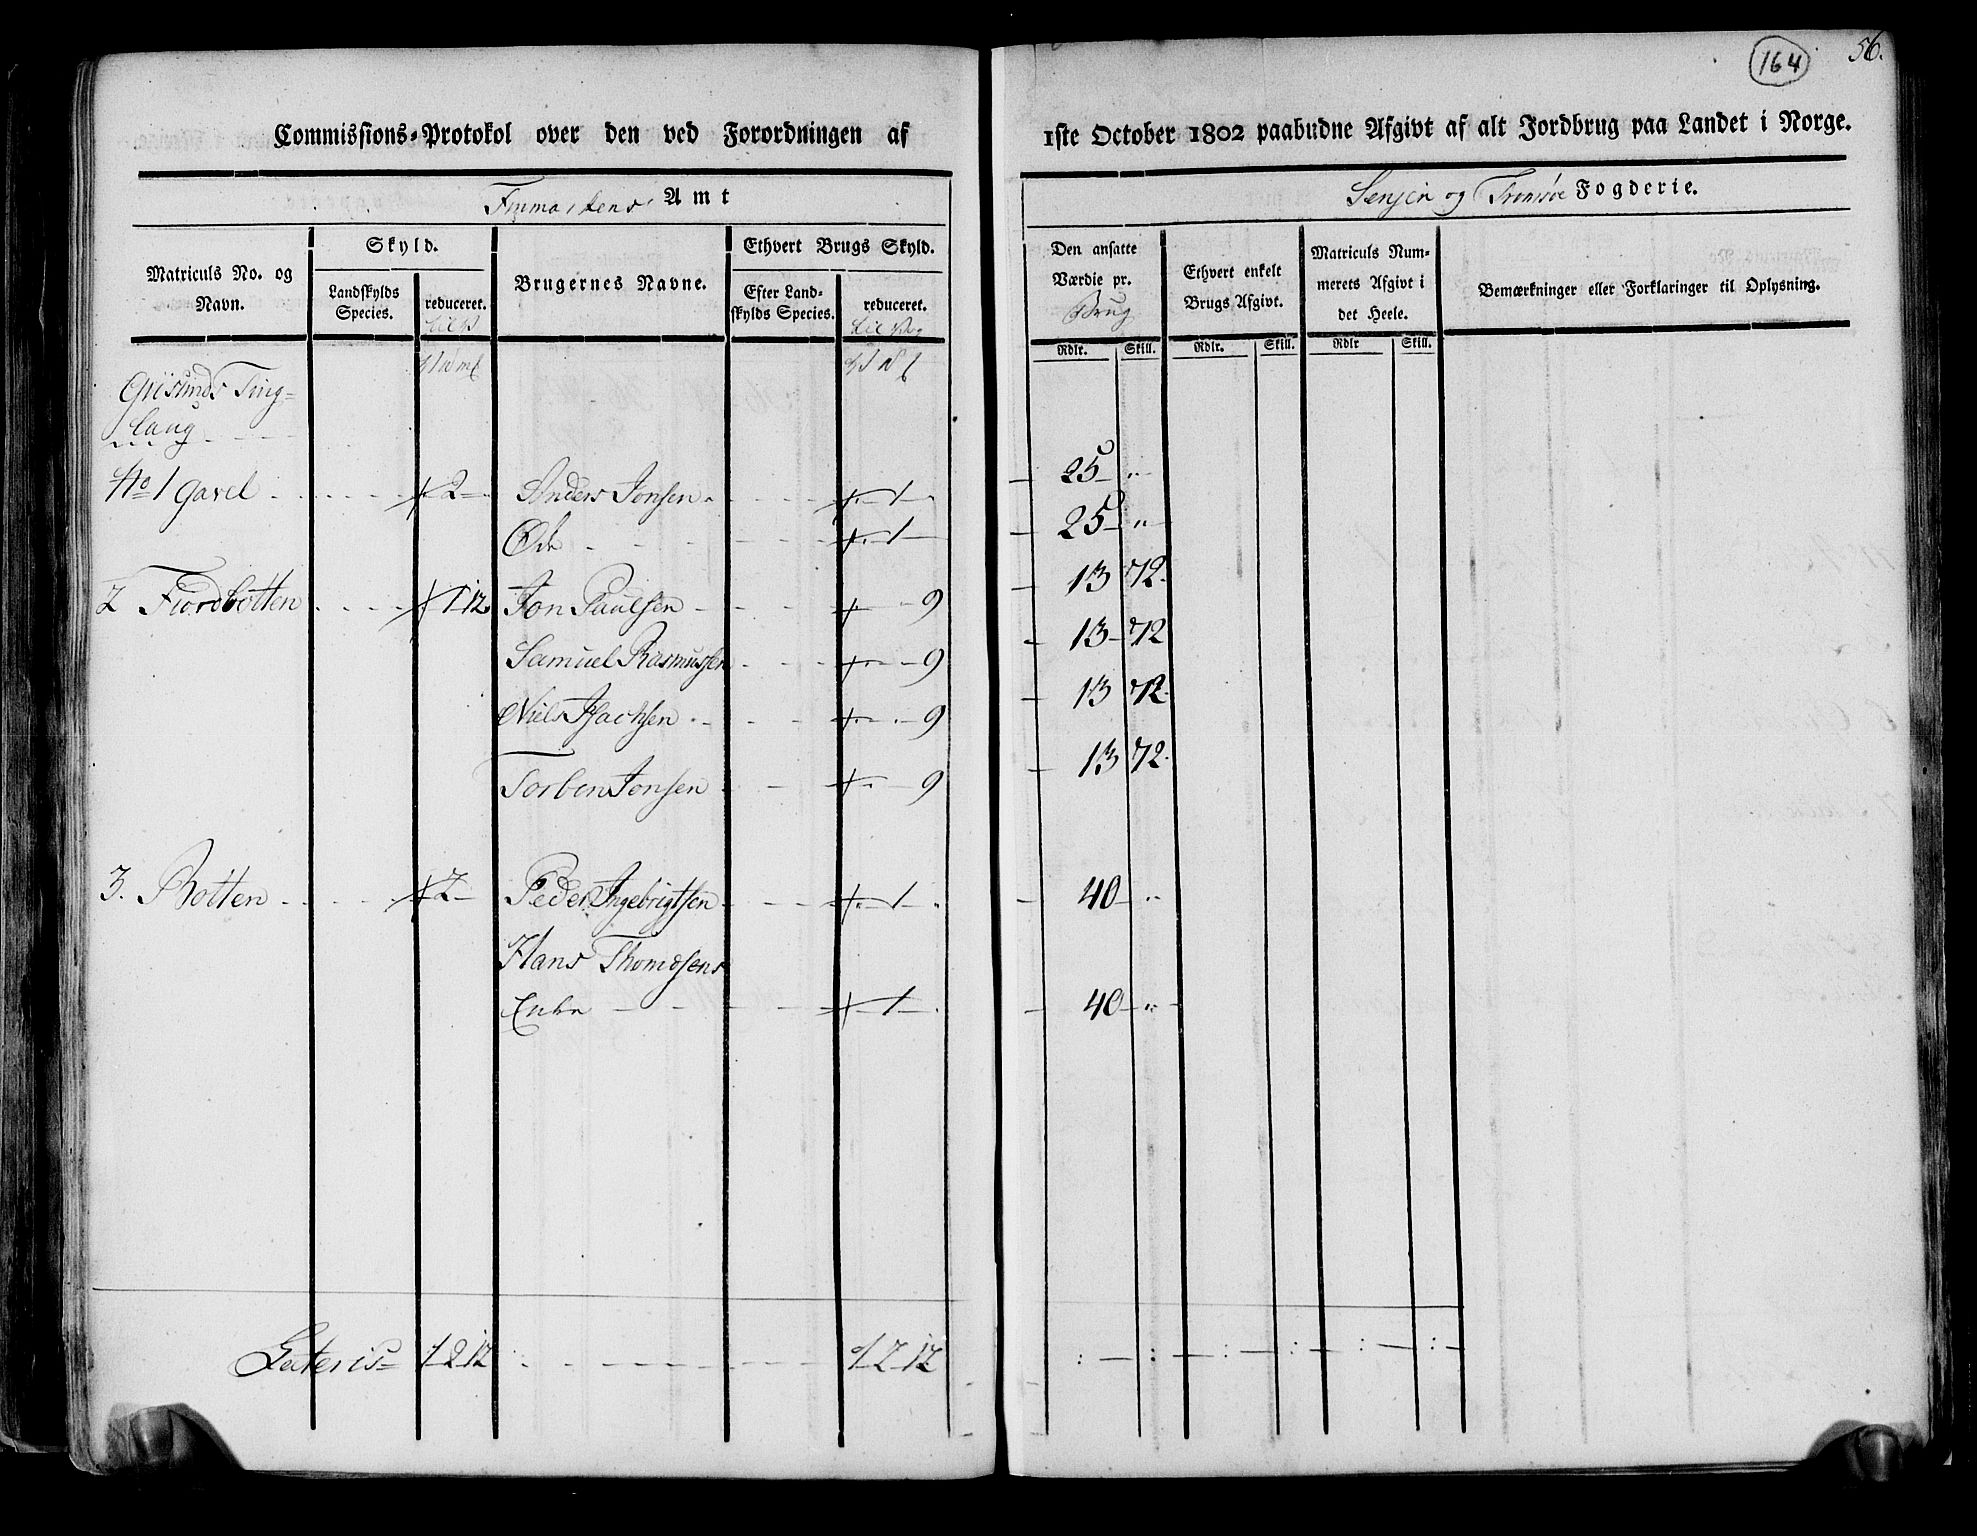 164 56.
Commissions-Protokol over den ved Forordningen af 1ste October 1802 paabudne Afgivt af alt Jordbrug paa Landet i Norge.
Finmarkens Amt Senjen og Tromsøe Fogderie.
Matriculs No. og Navn.
Skyld.
Landskylds Species.
reduceret.
Brugernes Navne.
Ethvert Brugs Skyld.
Efter Landskylds Species.
reduceret.
Den ansatte Værdie pr. Brug
Ethvert enkelt Brugs Afgivt.
Matriculs Nummerets Afgivt i det Heele.
Bemærkninger eller Forklaringer til Oplysning.
Rdlr. Skill. Rdlr. Skill. Rdlr Skill.
Ting=
laug
No 1 Gavel 2 Anders Jonsen 1 25 "
Øde 1 25 "
2 Fiordbotten 1 12 Jon Paulsen 9 13 72
Samuel Rasmussen 9 13 72
Niels Isachsen 9 13 72
Torben Jonsen 9 13 72
3. Botten 2 Peder Ingebrigtsen 1 40 "
Hans Thomesens
Enke 1 40 "
Lateris 1 2 12 1 2 12